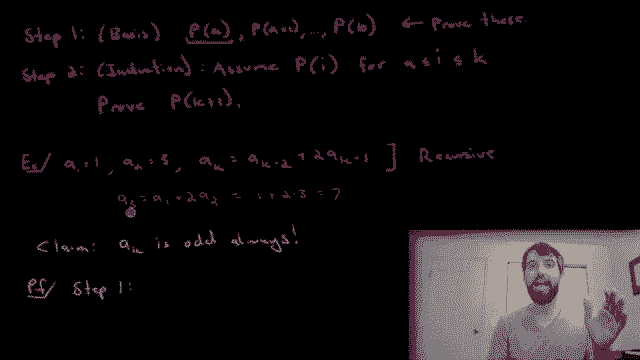 Step 1: (Basis) P(a), P(a+1), ..., P(b) ← Prove these
Step 2: (Induction): Assume P(i) for a ≤ i ≤ k
Prove P(k+1).
Ex/ a₁=1, a₂=3, aₖ = aₖ₋₂ + 2aₖ₋₁ ] Recursive
a₃ = a₁ + 2a₂ = 1 + 2·3 = 7
Claim: aₖ is odd always!
Pf/ Step 1: